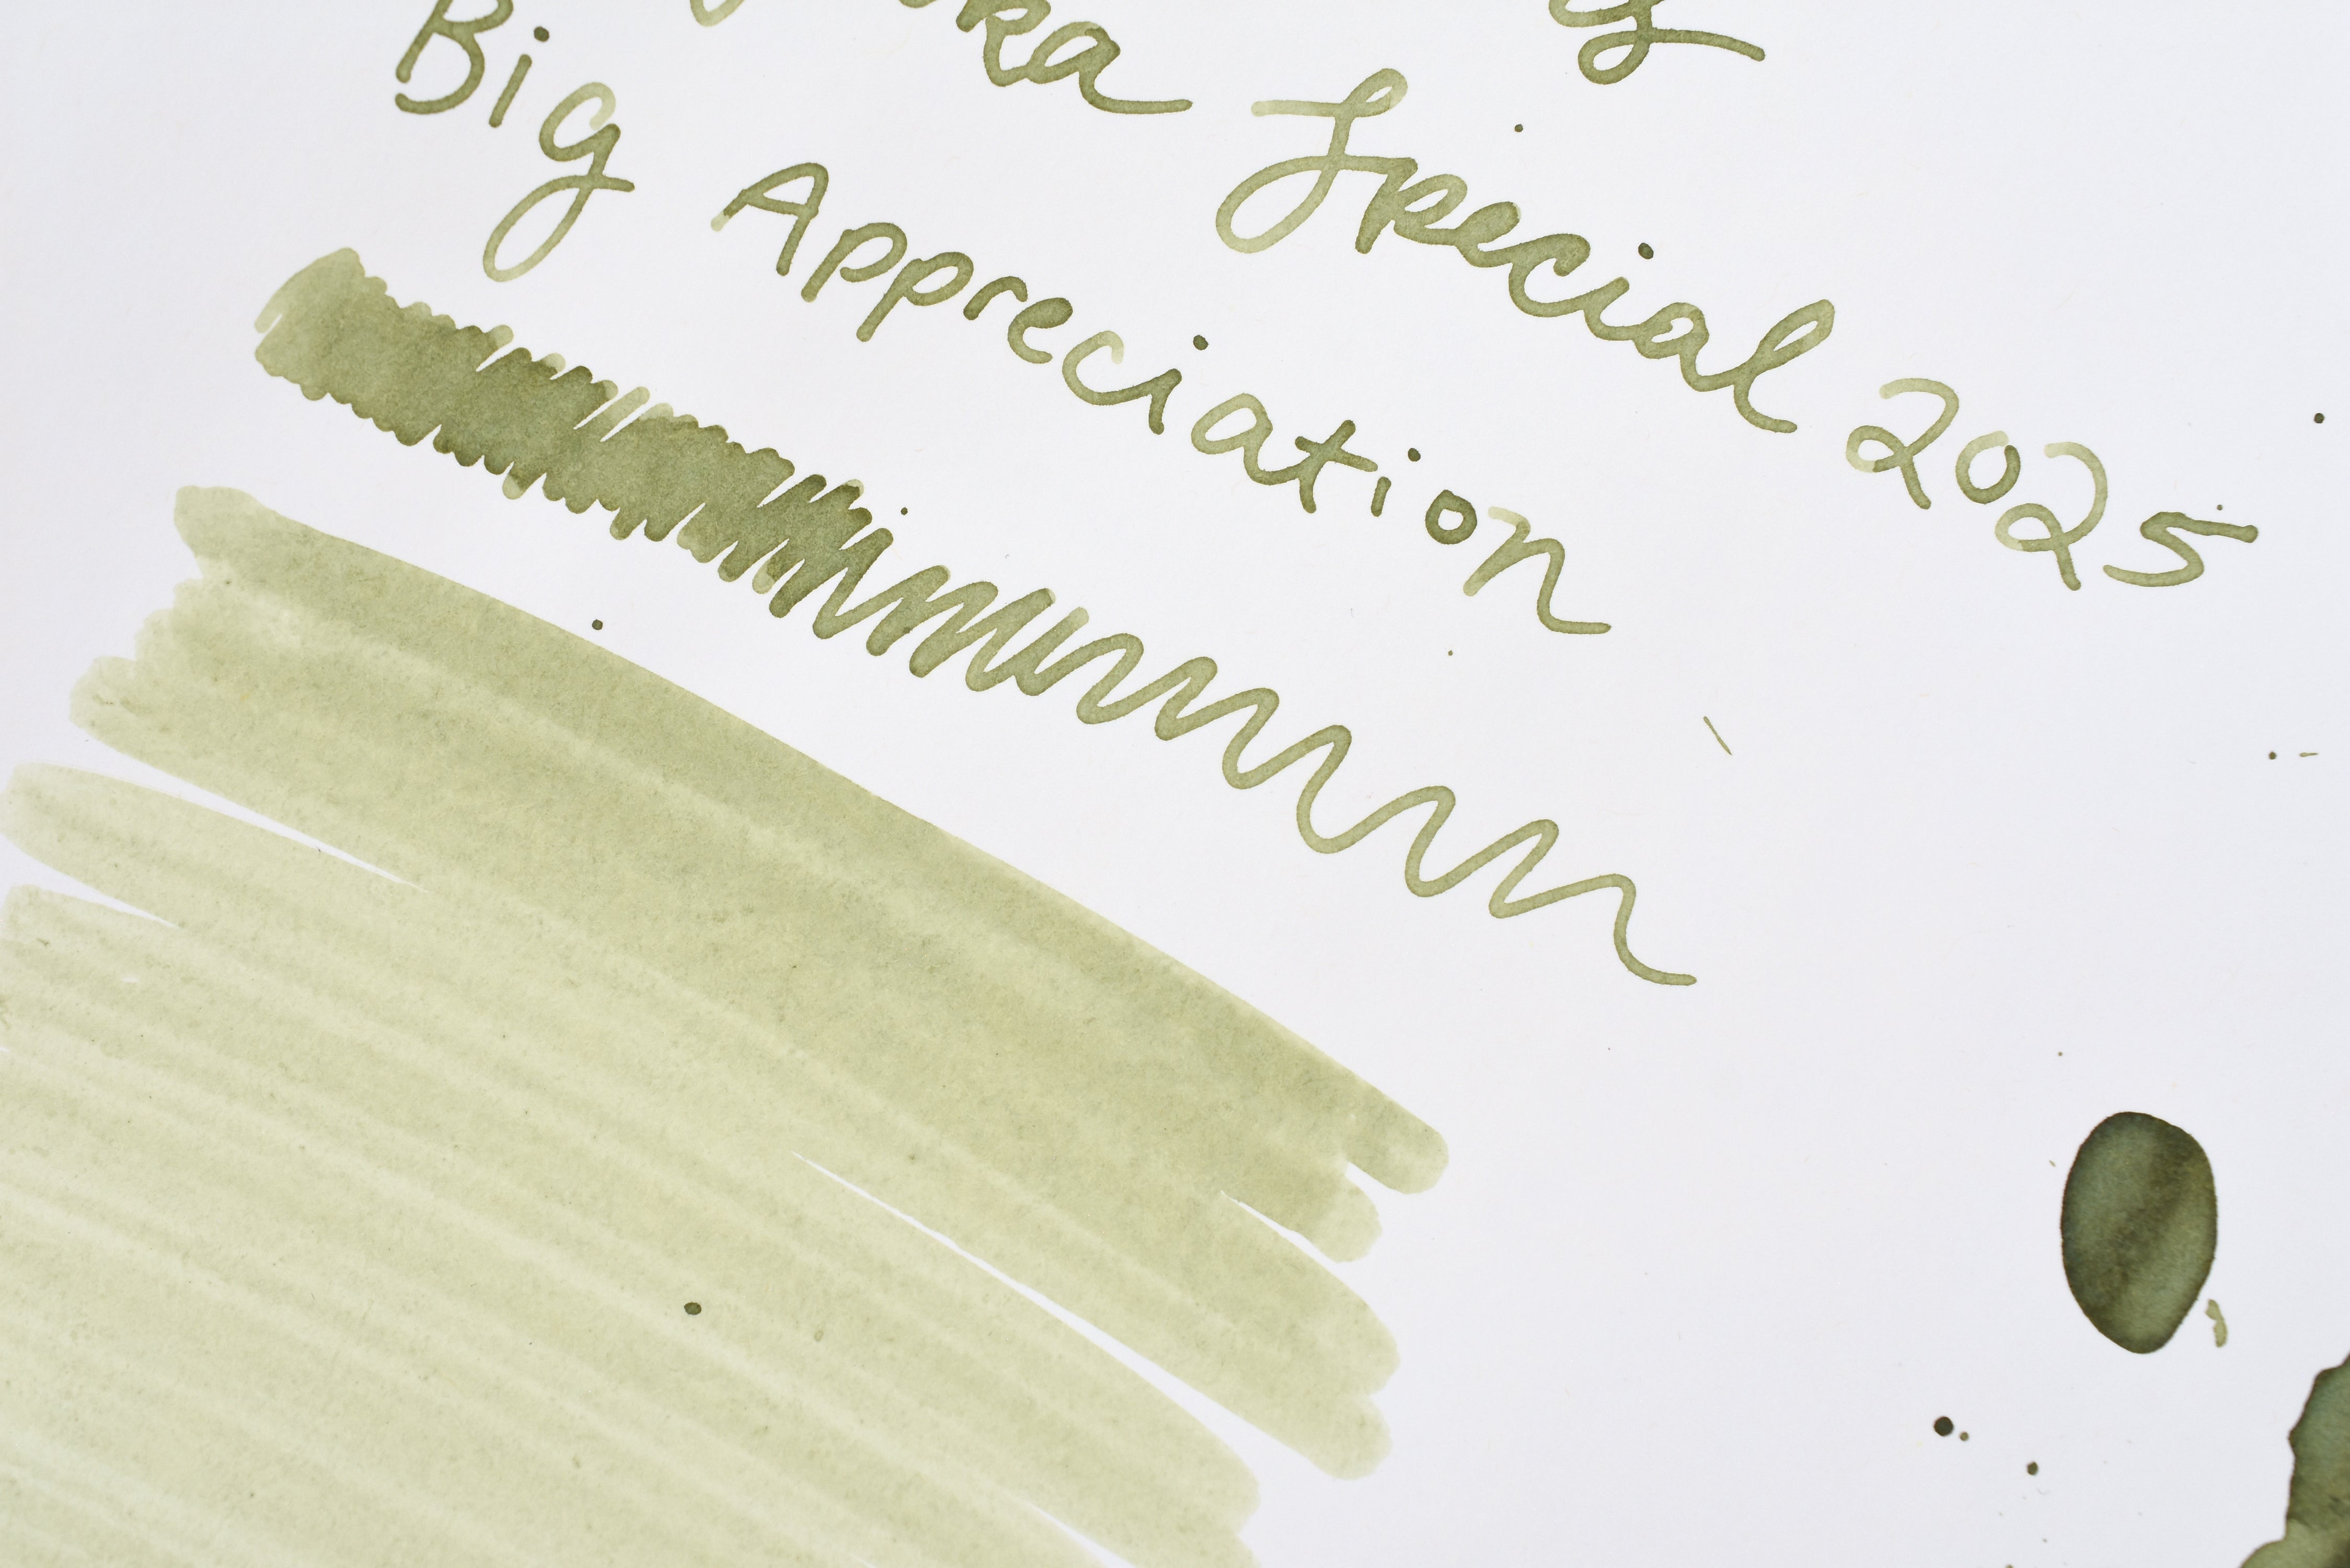 Special 2025
Big Appreciation